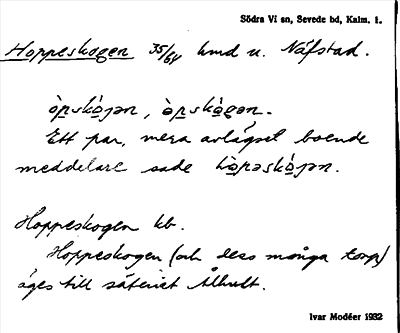 Södra Vi sn, Sevede bd, Kalm. l.
Hoppeskogen 35/64 hmd u. Näfstad.
òpskó̱jən, òpskó̱gən.
Ett par, mera avlägset boende
meddelare sade hòpəskó̱jən.
Hoppeskogen kb.
Hoppeskogen (och dess många torp)
äges till säteriet Ålhult.
Ivar Modéer 1932